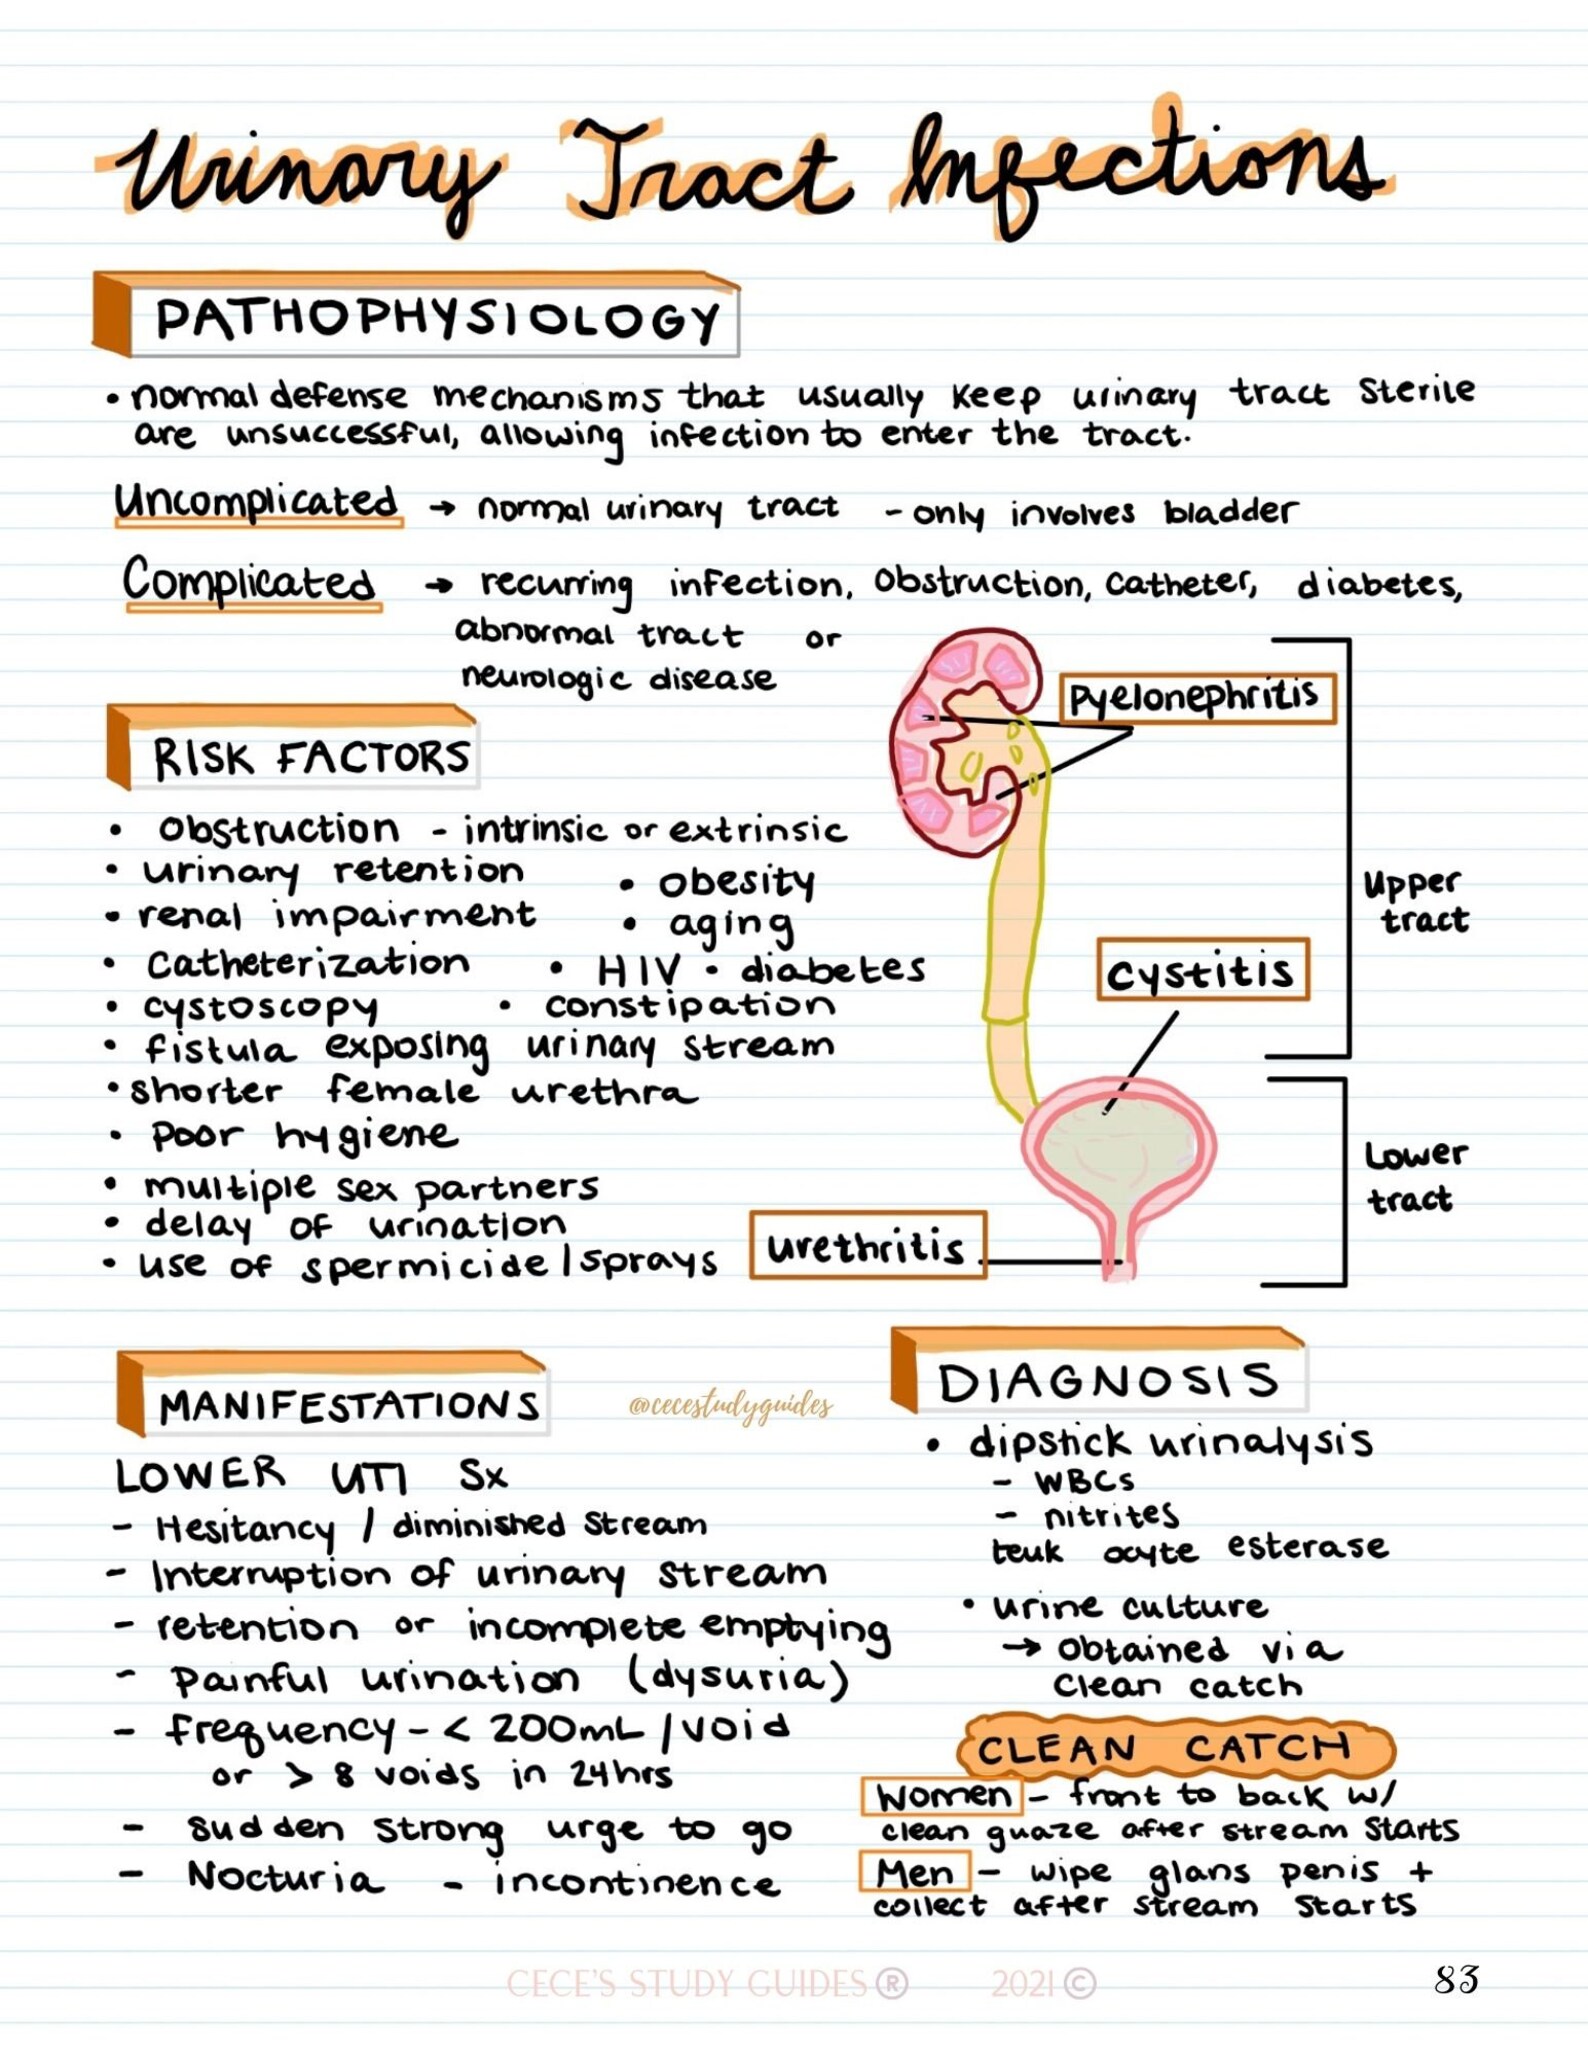 Urinary Tract Infections
PATHOPHYSIOLOGY
• normal defense mechanisms that usually keep urinary tract sterile
are unsuccessful, allowing infection to enter the tract.
Uncomplicated → normal urinary tract - only involves bladder
Complicated → recurring infection, obstruction, catheter, diabetes,
abnormal tract or
neurologic disease
Pyelonephritis
RISK FACTORS
• Obstruction - intrinsic or extrinsic
• urinary retention
• obesity
• renal impairment
• aging
• Catheterization • HIV • diabetes
• cystoscopy • constipation
• fistula exposing urinary stream
• shorter female urethra
• Poor hygiene
• multiple sex partners
• delay of urination
• use of spermicide/sprays
Upper
tract
Cystitis
Lower
tract
urethritis
MANIFESTATIONS
@cecestudyguides
LOWER UTI Sx
- Hesitancy / diminished stream
- Interruption of urinary stream
- retention or incomplete emptying
- Painful urination (dysuria)
- frequency - < 200mL/void
or > 8 voids in 24hrs
- sudden strong urge to go
- Nocturia - incontinence
DIAGNOSIS
• dipstick urinalysis
- WBCs
- nitrites
leuk ocyte esterase
• urine culture
→ obtained via
clean catch
CLEAN CATCH
Women - front to back w/
clean guaze after stream starts
Men - wipe glans penis +
collect after stream starts
CECE'S STUDY GUIDES ® 2021 ©
83